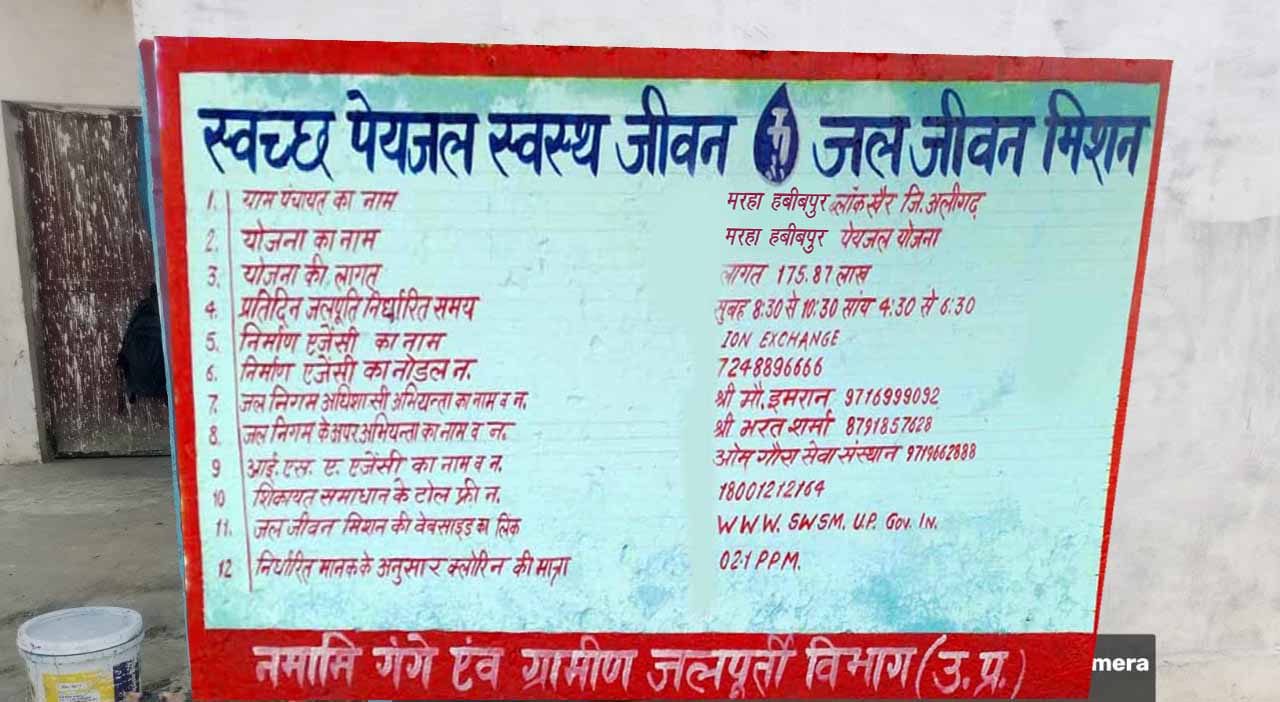 स्वच्छ पेयजल स्वस्थ जीवन जल जीवन मिशन
1. ग्राम पंचायत का नाम मरहा हबीबपुर ब्लॉक खैर जि.अलीगढ़
2. योजना का नाम मरहा हबीबपुर पेयजल योजना
3. योजना की लागत लागत 175.87 लाख
4. प्रतिदिन जलपूति निर्धारित समय सुबह 8:30 से 10:30 सांय 4:30 से 6:30
5. निर्माण एजेंसी का नाम ION EXCHANGE
6. निर्माण एजेंसी का नोडल न. 7248896666
7. जल निगम अधिशासी अभियन्ता का नाम व न. श्री मौ. इमरान 9716999092
8. जल निगम के अपर अभियन्ता का नाम व न. श्री भरत शर्मा 8791857628
9 आई. एस. ए. एजेंसी का नाम व न. ओम गौरा सेवा संस्थान 9719662888
10 शिकायत समाधान के टोल फ्री न. 18001212164
11. जल जीवन मिशन की वेबसाइड का लिंक WWW. SWSM. U.P. Gov. In.
12 निर्धारित मानक के अनुसार क्लोरिन की मात्रा 02.1 PPM.
नमामि गंगे एंव ग्रामीण जलपूर्ती विभाग (उ.प्र.)
mera